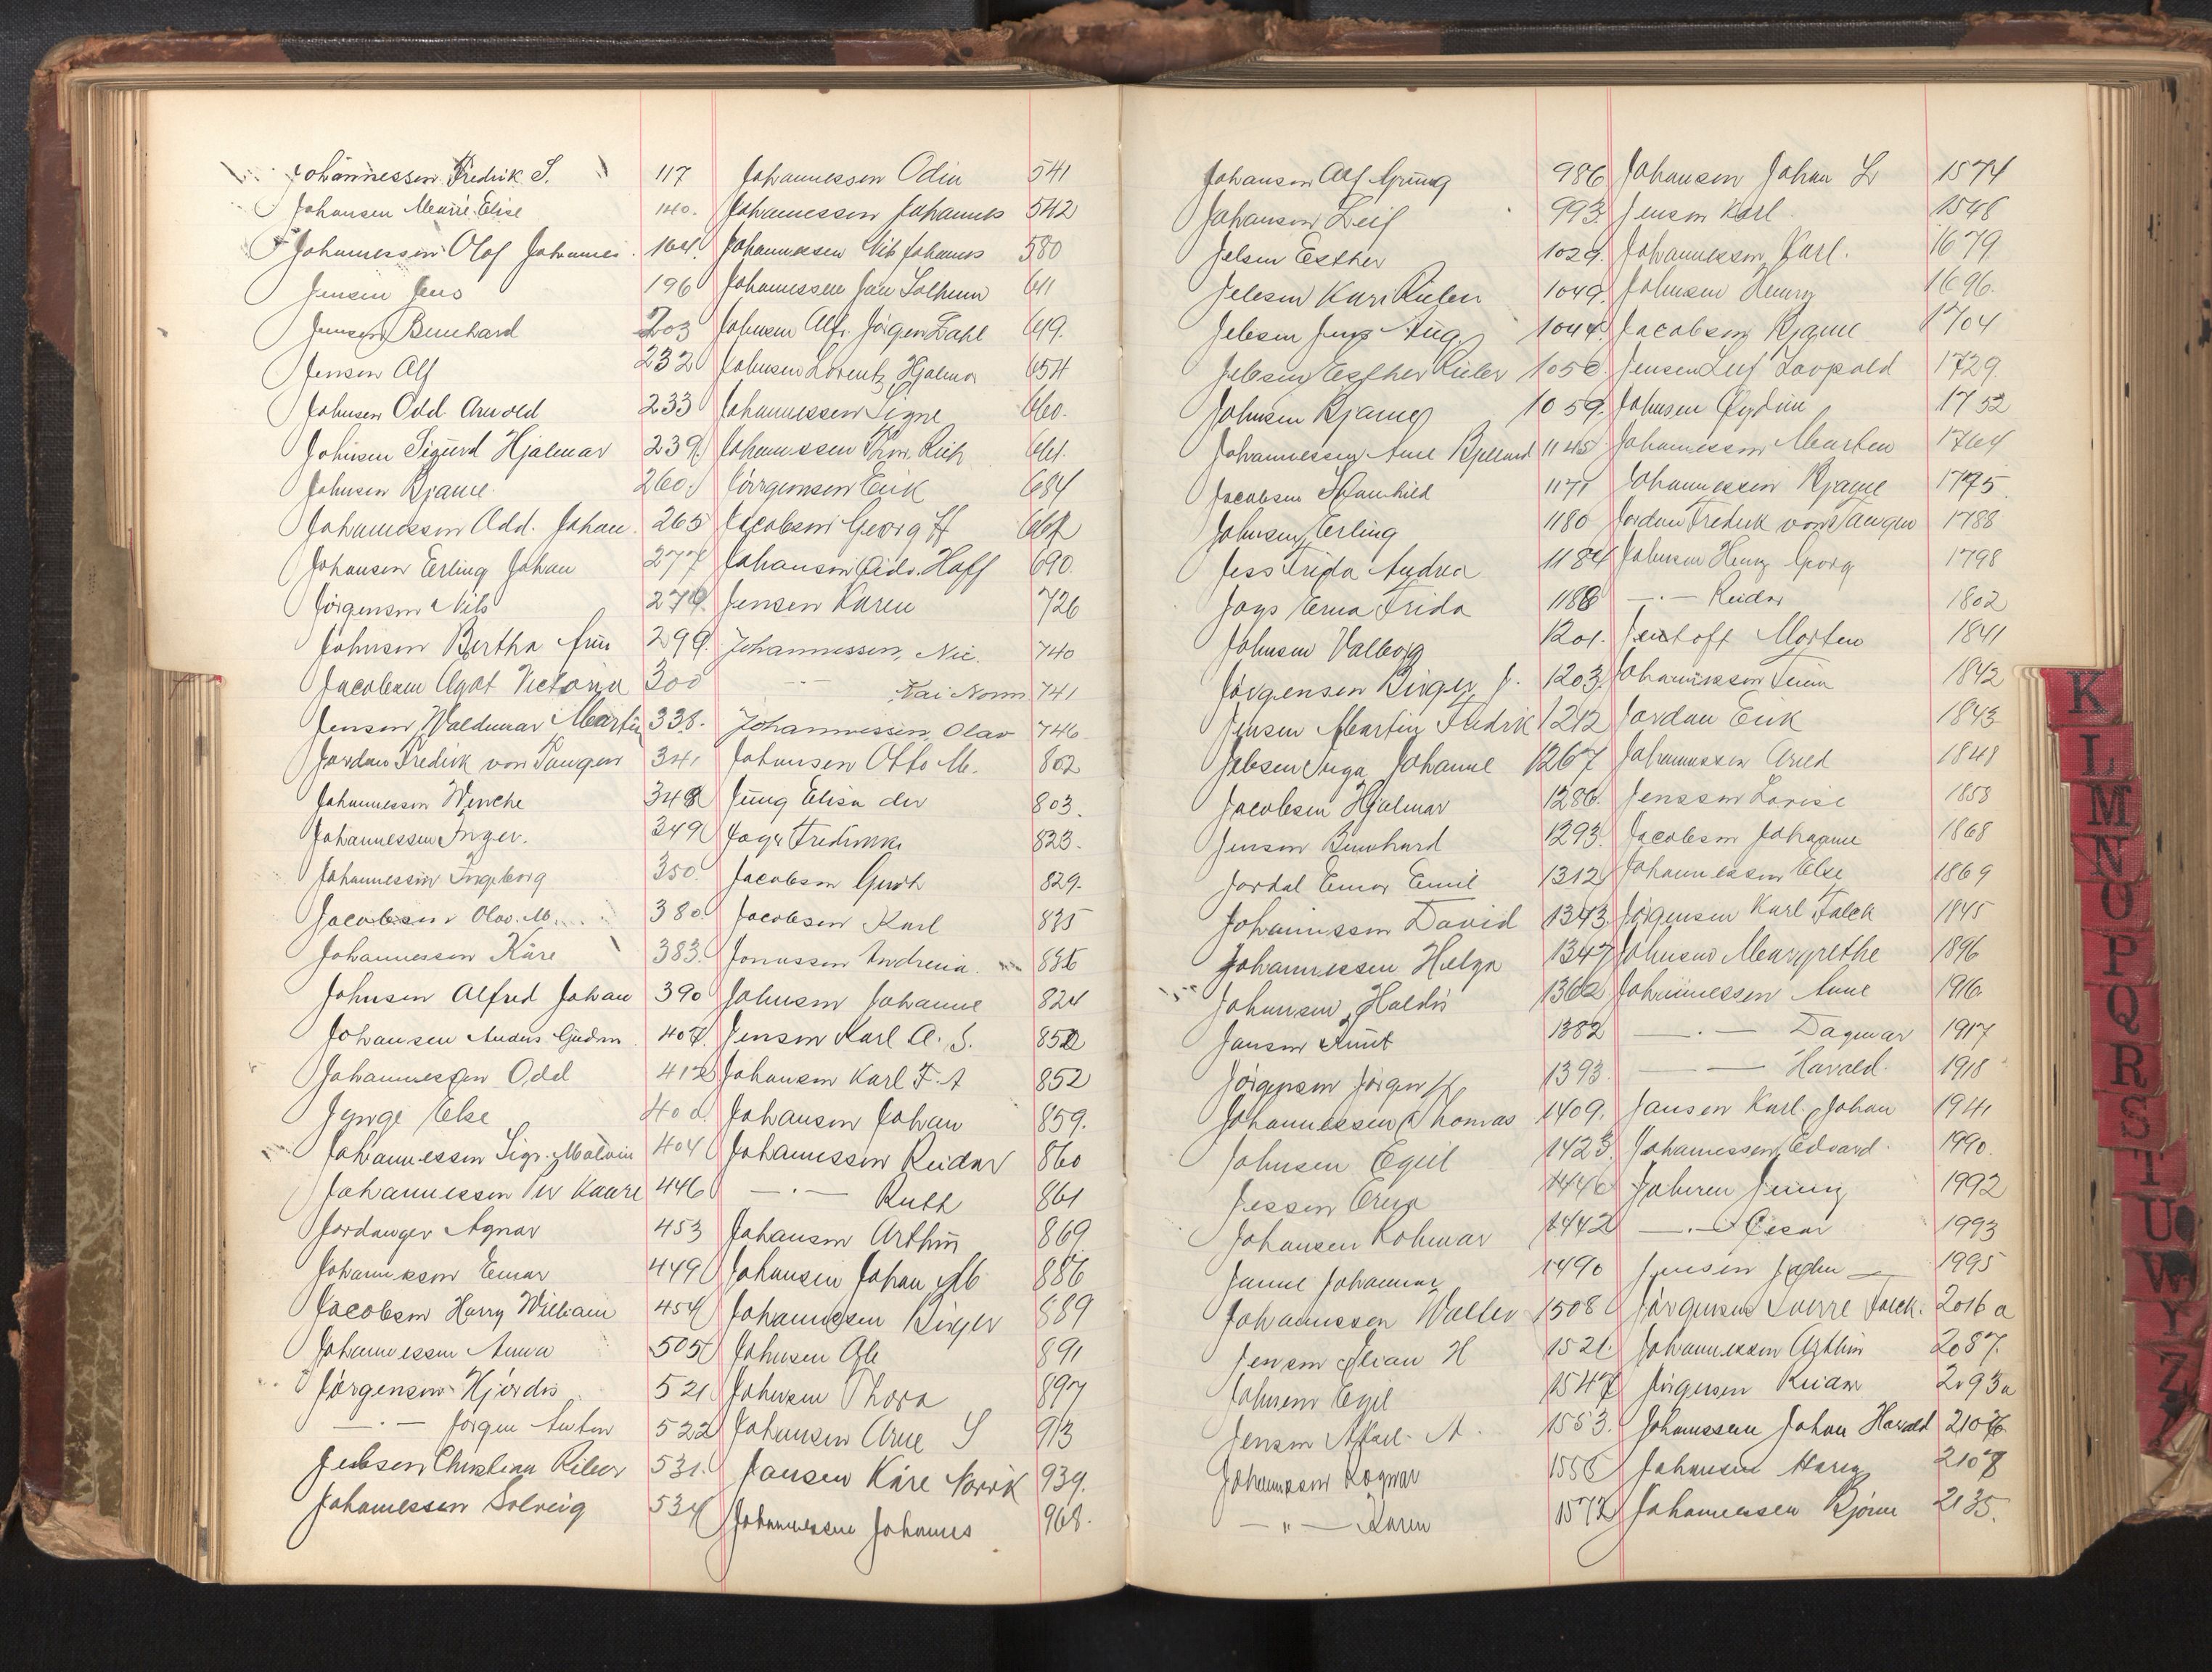 Johannessen Fredrik S. 117
Johansen Marie Elise 140.
Johannessen Olaf Johannes 164.
Jensen Jens 196
Jensen Bernhard 203
Jensen Alf 232
Johnsen Odd Arnold 233
Johnsen Sigurd Hjalmar 239
Johnsen Bjarne 260.
Johannessen Odd. Johan 265
Johansen Erling Johan 277
Jörgensen Nils 279.
Johnsen Bertha 299.
Jacobsen Agot Victoria 300
Jensen Waldemar Martin 338.
Jordan Fredrik von Tangen 341
Johannessen Wenche 348
Johannessen Inger. 349
Johannessen Ingeborg 350.
Jacobsen Olav. M. 380
Johannessen Kåre 383.
Johnsen Alfred Johan 390
Johansen Anders Gudm. 407.
Johannessen Odd 412
Else
Johannessen Sigr. Malvin 404
Johannessen Per Kaare 446
Jordanger Agnar 453
Johannessen Einar 449
Jacobsen Harry William 454
Johannessen Anna 505
Jörgensen Hjördis 521
— . — Jörgen Anton 522
Jebsen Christian Rieber 531.
Johannessen Solveig 534
Johannessen Odin 541
Johannessen Johannes 542
Johannessen Nils Johannes 580
Johannessen Jan Solheim 611
Johnsen Alfr. Jörgen Dahl 619.
Johnsen Lorentz Hjalmar 654
Johannessen Signe 660.
Johannessen Thor. Rich 661.
Jörgensen Erik 684
Jacobsen Georg H
Johansen Hoff 690.
Jensen Karen 726
Johannessen, Nic. 740
— " — Kai Norm 741
Johannessen, Olav 746
Johansen Otto M. 802
Jung Elisa der 803.
823.
Jacobsen 829.
Jacobsen Karl 835
Jonassen Andrea. 836
Johnsen Johanne 824
Jensen Karl A. S. 850
Johansen Karl F. A 852
Johansen Johan 859.
Johannessen Reidar 860
— . — Ruth 861
Johansen Arthur 869
Johansen Johan M 886
Johannessen Birger 889
Johnsen 891
Johnsen Thora 897
Johansen Arne S 913
Jansen Kåre Narvik 939.
Johannessen Johannes 968.
Johansen Alf Grung 986
Johansen Leif 993.
Jebsen Esther 1029.
Jebsen Kari Rieber 1049.
Jebsen Jens Aug. 1044.
Jebsen Esther Rieber 1056.
Johnsen Bjarne 1059.
Johannessen Arne 1145
Jacobsen 1171
Johnsen Erling 1180
Jess Frida Andrea 1184
Erna Frida 1188
Johnsen Valborg 1201.
Jörgensen Birger J. 1203.
Jensen Martin Fredrik 1212
Jebsen Inga Johanne 1267
Jacobsen Hjalmar 1286.
Jensen Bernhard 1293.
Jordal Einar Emil 1312
Johannessen David 1343.
Johannessen Helga 1347
Johansen, Haldis 1362
Jansen Knut 1382
Jörgensen Jörgen 1393.
Johannessen Thomas 1409.
Johnsen Egil 1423.
Jessen Erna 1440
Johansen Kolmar 1442
1490
Johannessen Walter 1508
Jensen H 1521.
Johnsen Egil 1547
Jensen A. 1553.
Johannessen Ragnar 1556
— " — Karen 1572
Johansen Johan L 1574
Jensen Karl 1546
Johannessen, Karl. 1679
Johnsen Henry 1696.
Jacobsen Bjarne 1704
Jensen Leif Leopold 1729.
Johnsen Øydin 1752
Johannessen Marten 1764
Johannessen Bjarne 1775.
Jordan Fredrik von Tangen 1788
Johnsen Henry Georg 1798
— . — Reidar 1802
Jentoft Morten 1841
Johannessen Finn 1842
Jordan Erik 1843
Johannessen Arvid 1848
Jenssen Lovise 1858
Jacobsen Johanne 1868
Johannessen Else 1869
Jörgensen Karl Falck 1845
Johnsen Margrethe 1896
Johannessen Anne 1916.
— . — Dagmar 1917
— — Harald. 1918
Jansen Karl Johan 1941
Johannessen, Edvard. 1990.
1992
— . — Cesar 1993
Jensen 1995
Jörgensen Sverre Falck. 2016 a
Johannessen Arthur 2087.
Jörgensen Reidar 2093a
Johannessen Johan Harald 2106
Johansen Harry 2107
Johannessen Bjørn 2135.
K
L
M
N
O
P
Q
R
S
T
U
W
Y
Z